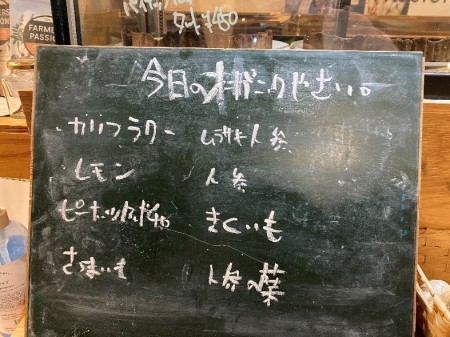 FARME
PASSION
¥450
今日のオーガニックやさい。
カリフラワー
ムラサキ人参
レモン
人参
ピーナッツかぼちゃ
きくいも
さつまいも
人参の葉